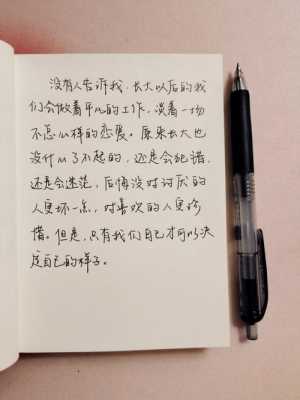 没有人告诉我,长大以后的我
们会做着平凡的工作,谈着一场
不怎么样的恋爱。原来长大也
没什么了不起的,还是会犯错,
还是会迷茫,后悔没对讨厌的
人更坏一点,对喜欢的人更珍
惜。但是,只有我们自己才可以决
定自己的样子。